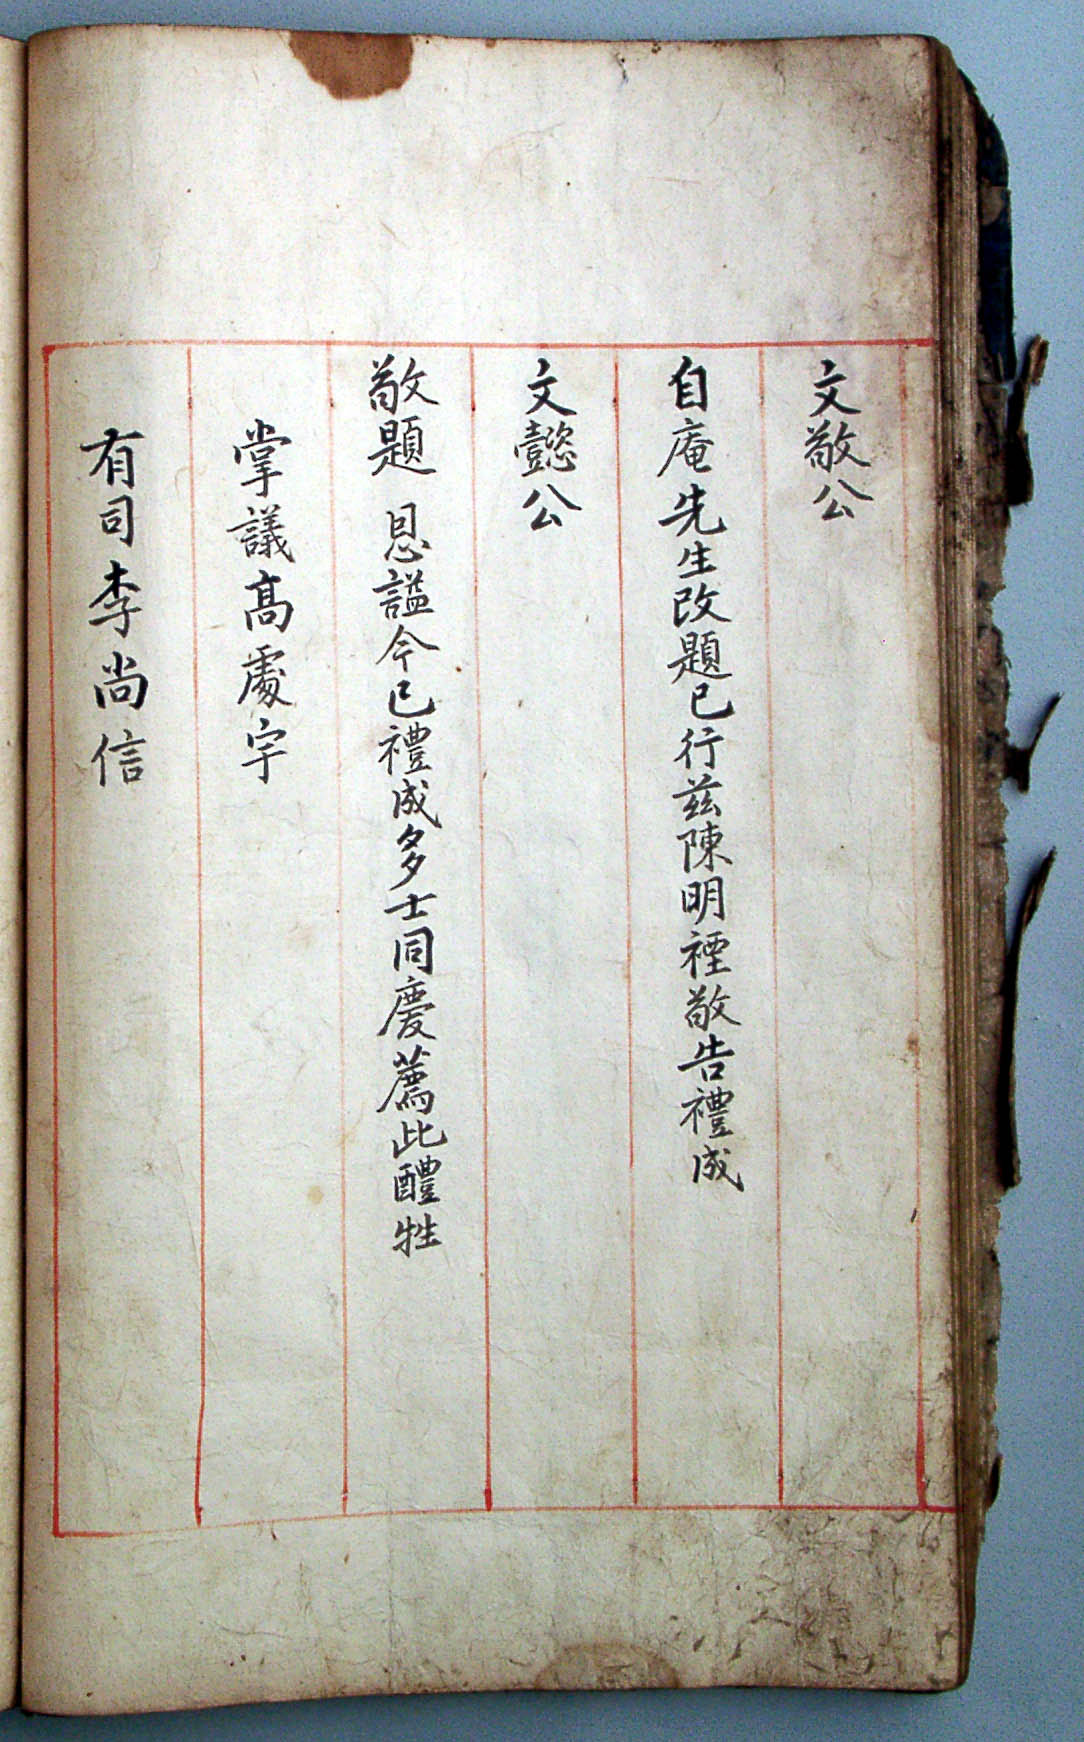 文敬公
自庵先生改題已行兹陳明禋敬告禮成
文懿公
敬題 恩諡今已禮成多士同慶薦此醴牲
掌議高處宇
有司李尚信